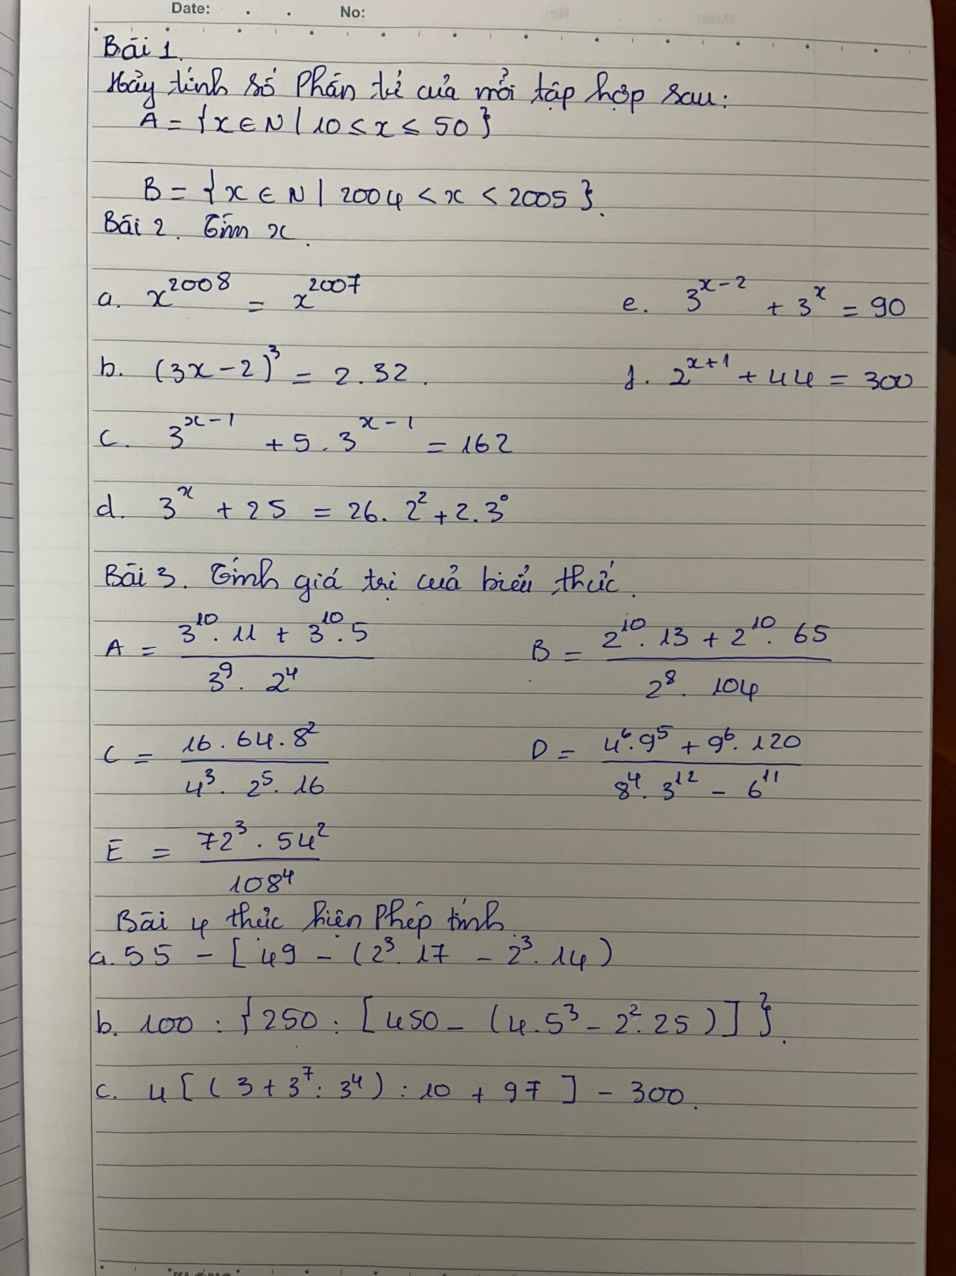 Date: . . No:
Bài 1.
Hãy tính số Phần tử của mỗi tập hợp sau:
A = {x ∈ N | 10 ≤ x ≤ 50}
B = {x ∈ N | 2004 < x < 2005}.
Bài 2. Tìm x.
a. x²⁰⁰⁸ = x²⁰⁰⁷
e. 3ˣ⁻² + 3ˣ = 90
b. (3x - 2)³ = 2.32.
f. 2ˣ⁺¹ + 44 = 300
c. 3ˣ⁻¹ + 5.3ˣ⁻¹ = 162
d. 3ˣ + 25 = 26.2² + 2.3⁰
Bài 3. Tính giá trị của biểu thức.
A = (3¹⁰.11 + 3¹⁰.5) / (3⁹.2⁴)
B = (2¹⁰.13 + 2¹⁰.65) / (2⁸.104)
C = (16.64.8²) / (4³.2⁵.16)
D = (4⁶.9⁵ + 9⁶.120) / (8⁴.3¹² - 6¹¹)
E = (72³.54²) / 108⁴
Bài 4 thức hiện Phép tính
a. 55 - [49 - (2³.17 - 2³.14)
b. 100 : {250 : [450 - (4.5³ - 2².25)]}.
c. 4[(3 + 3⁷ : 3⁴) : 10 + 97] - 300.